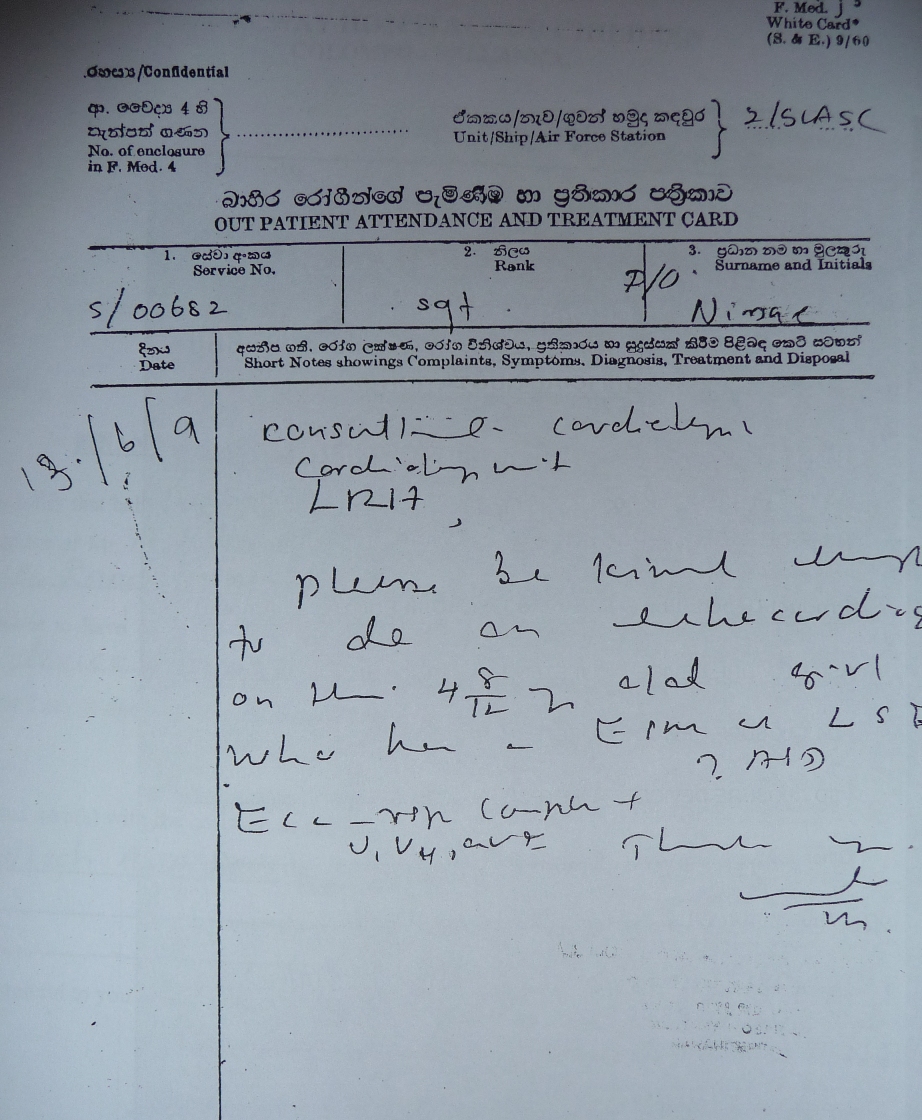 F. Med. J 5
White Card*
(S. & E.) 9/60
රහස්‍ය/Confidential
ආ. වෛද්‍ය 4 හි
තැන්පත් ගණන
No. of enclosure
in F. Med. 4
ඒකකය/නැව/ගුවන් හමුදා කඳවුර
Unit/Ship/Air Force Station
2/SLASC
බාහිර රෝගීන්ගේ පැමිණීම හා ප්‍රතිකාර පත්‍රිකාව
OUT PATIENT ATTENDANCE AND TREATMENT CARD
1. සේවා අංකය
Service No.
S/00682
2. නිලය
Rank
sgt
3. ප්‍රධාන නම හා මුලකුරු
Surname and Initials
D/O
දිනය
Date
අසනීප ගති, රෝග ලක්ෂණ, රෝග විනිශ්චය, ප්‍රතිකාරය හා සුදුස්සක් කිරීම පිළිබඳ කෙටි සටහන්
Short Notes showings Complaints, Symptoms, Diagnosis, Treatment and Disposal
13/6/9
consultant cardiologist
Cardiology unit
please be kind enough
to do an echocardiog
on this 4 8/12 old girl
who has a ESM at LSE
? ASD
ECG -
V1 V4, avF Thank